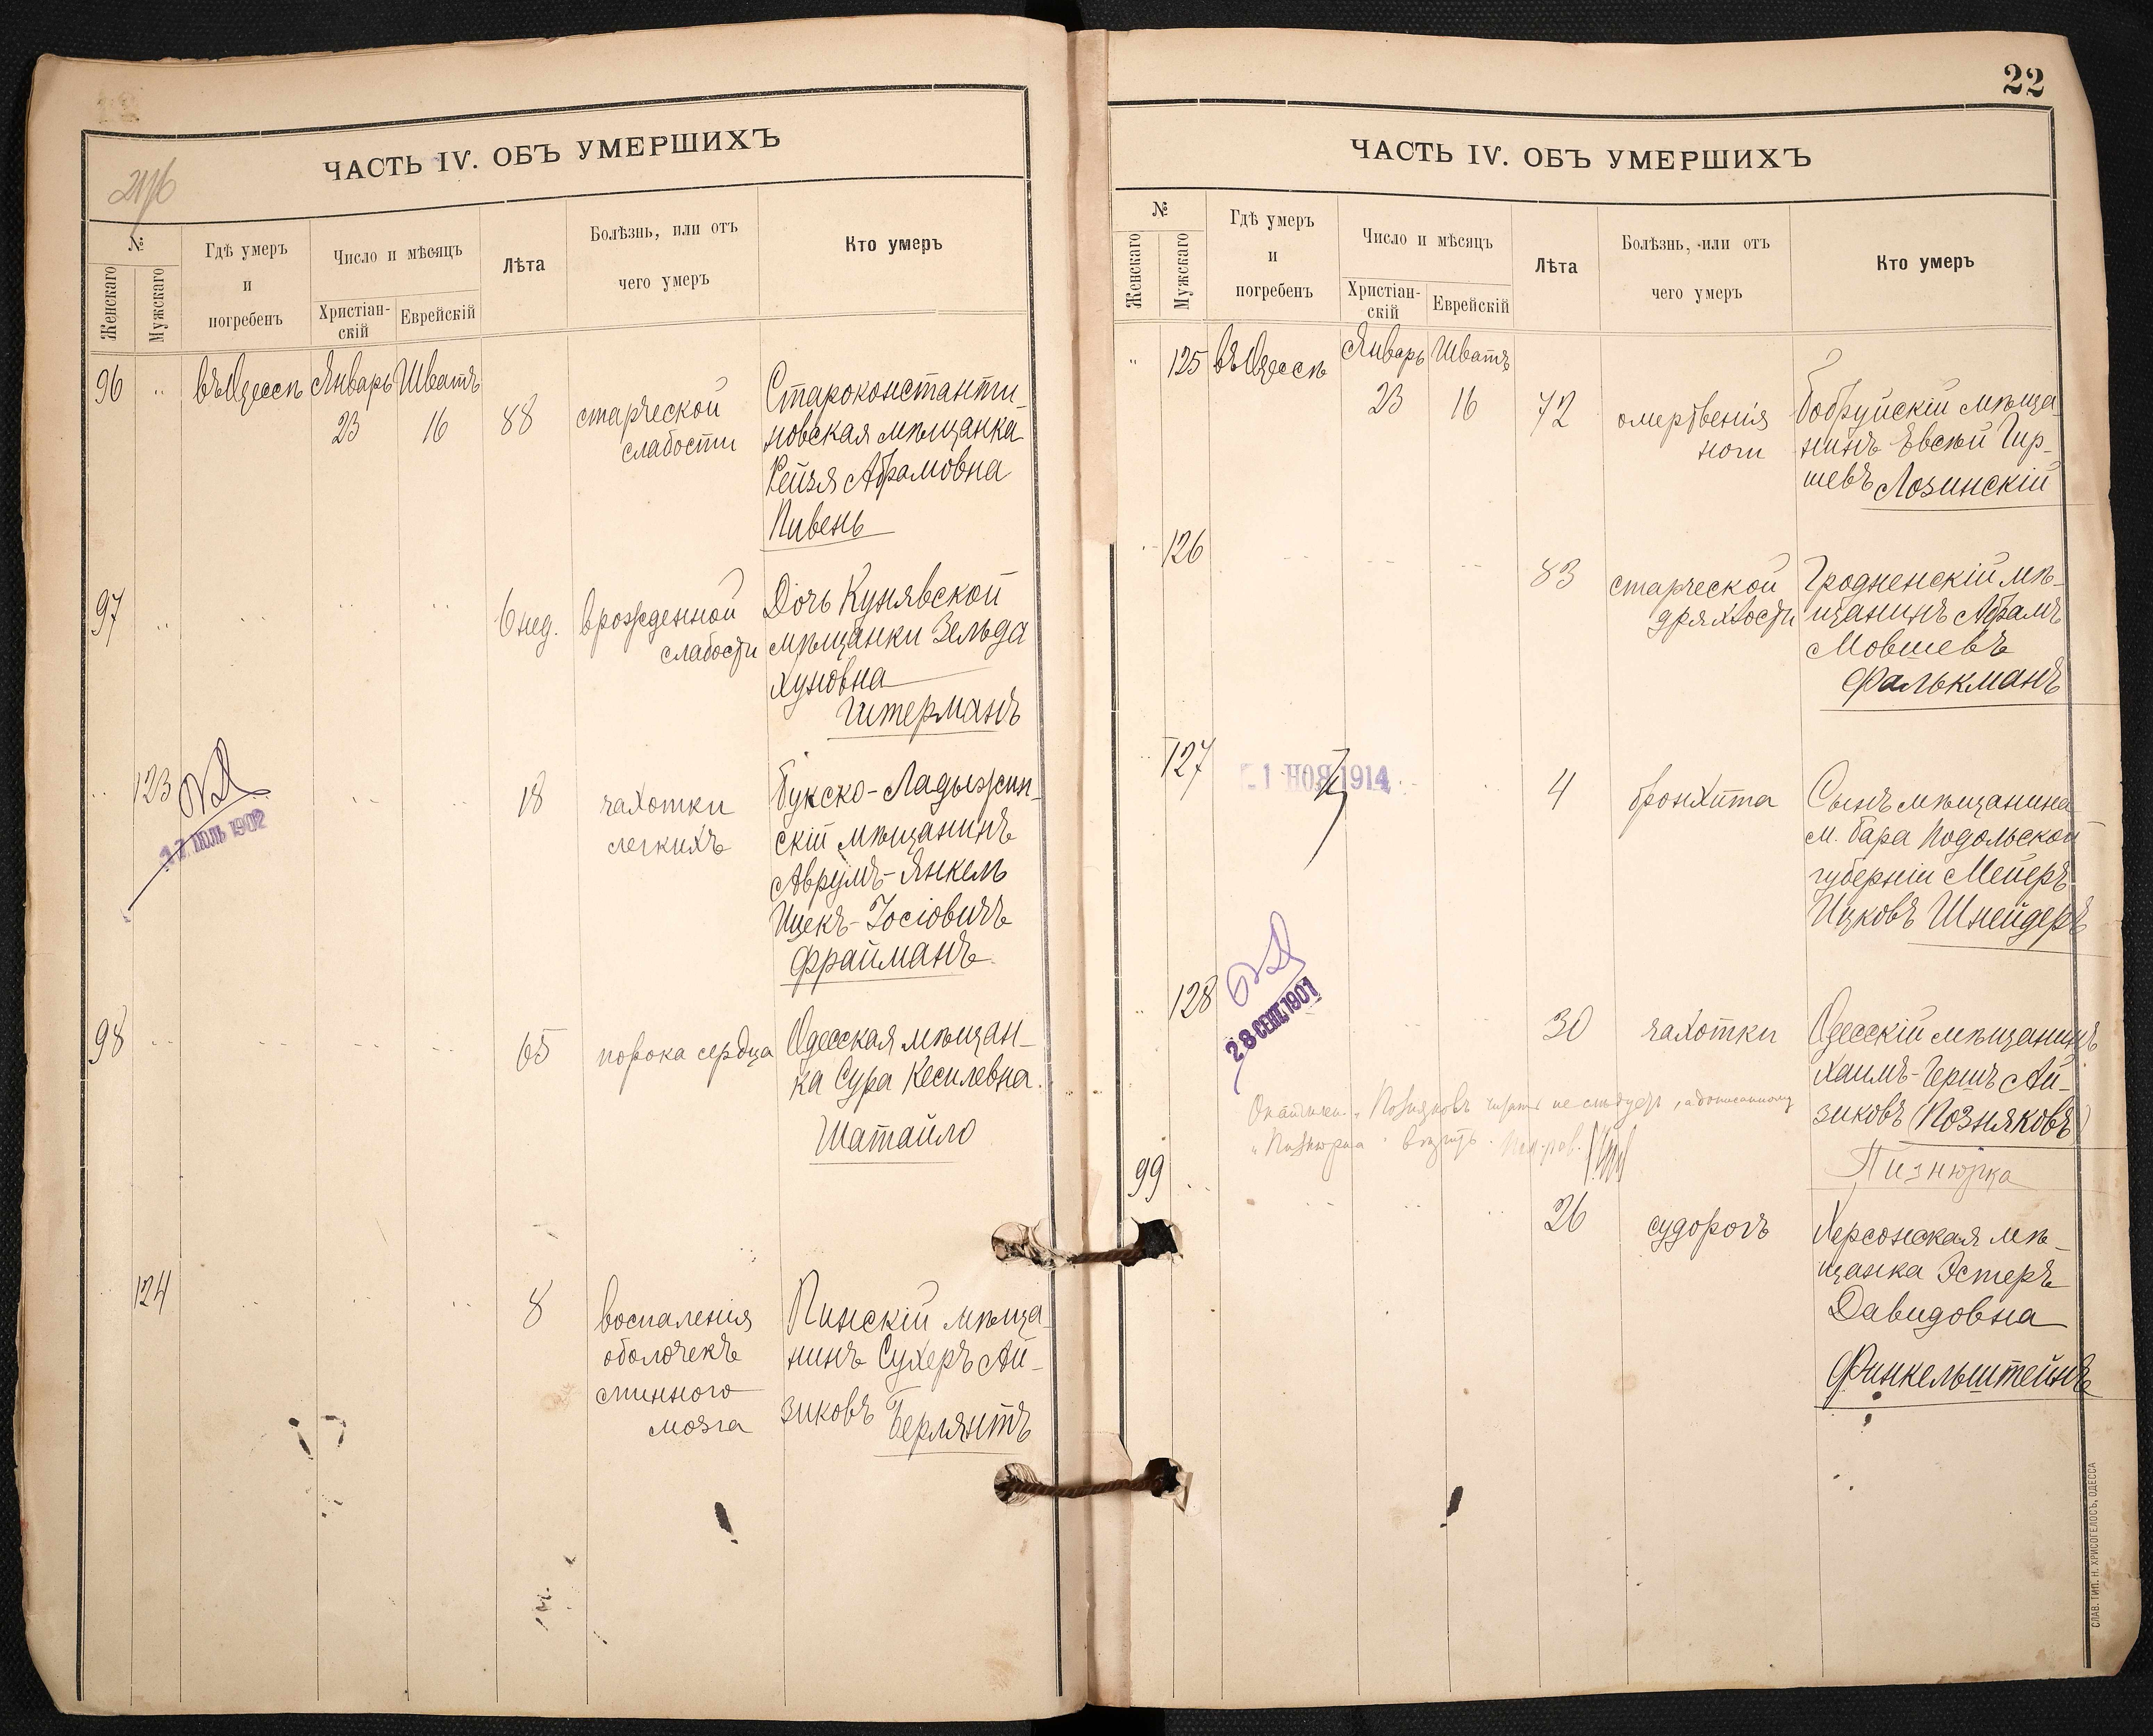 ЧАСТЬ IV. ОБЪ УМЕРШИХЪ
№
Женскаго
Мужскаго
Гдѣ умеръ
и
погребенъ
Число и мѣсяцъ
Христіан-
скій
Еврейскій
Лѣта
Болѣзнь, или отъ
чего умеръ
Кто умеръ
96 " въ Одессѣ Январь Шватъ
23 16 88 старческой
слабости
Староконстанти-
новская мѣщанка
Рейзя Абрамовна
Пивень
97 6 нед. врожденной
слабости
Дочь Кунявской
мѣщанки Зельда
Хуновна
Штерманъ
123 18 чахотки
легкихъ
17 ІЮЛЬ 1902
Букско-Ладыжин-
скій мѣщанинъ
Аврумъ-Янкель
Ицекъ-Іосіовичъ
Фрайманъ
98 65 порока сердца
Одесская мѣщан-
ка Сура Кесилевна
Шатайло
124 8 воспаленія
оболочекъ
спинного
мозга
Пинскій мѣща-
нинъ Сухеръ Ай-
зиковъ Берлянтъ
22
ЧАСТЬ IV. ОБЪ УМЕРШИХЪ
№
Женскаго
Мужскаго
Гдѣ умеръ
и
погребенъ
Число и мѣсяцъ
Христіан-
скій
Еврейскій
Лѣта
Болѣзнь, или отъ
чего умеръ
Кто умеръ
" 125 въ Одессѣ Январь Шватъ
23 16 72 омертвенія
ноги
Бобруйскій мѣща-
нинъ Евсѣй Гир-
шевъ Лозинскій
126 83 старческой
дряхлости
Гродненскій мѣ-
щанинъ Абрамъ
Мовшевъ
Фалькманъ
127 4 бронхита
1 НОЯ 1914
Сынъ мѣщанина
м. Бара Подольской
губерніи Мейеръ
Ицковъ Шнейдеръ
128 30 чахотки
28 СЕНТ. 1901
Одесскій мѣщанинъ
Хаимъ-Гершъ Ай-
зиковъ (Позняковъ)
Пизнюрка
"Позняковъ читать не слѣдуетъ, а дописанному
"Пизнюрка"
99 26 судорогъ
Херсонская мѣ-
щанка Эстеръ
Давидовна
Финкельштейнъ
СЛАВ. ТИП. Н. ХРИСОГЕЛОСЪ, ОДЕССА